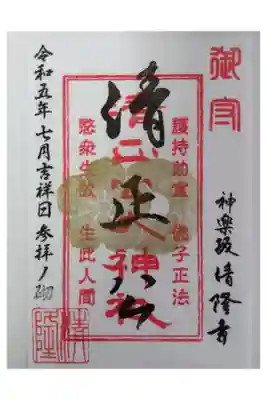 御守
神楽坂清隆寺
護持助宣 佛子正法
清正公
愍衆生故 生此人間
令和五年七月吉祥日参拝ノ砌
清隆